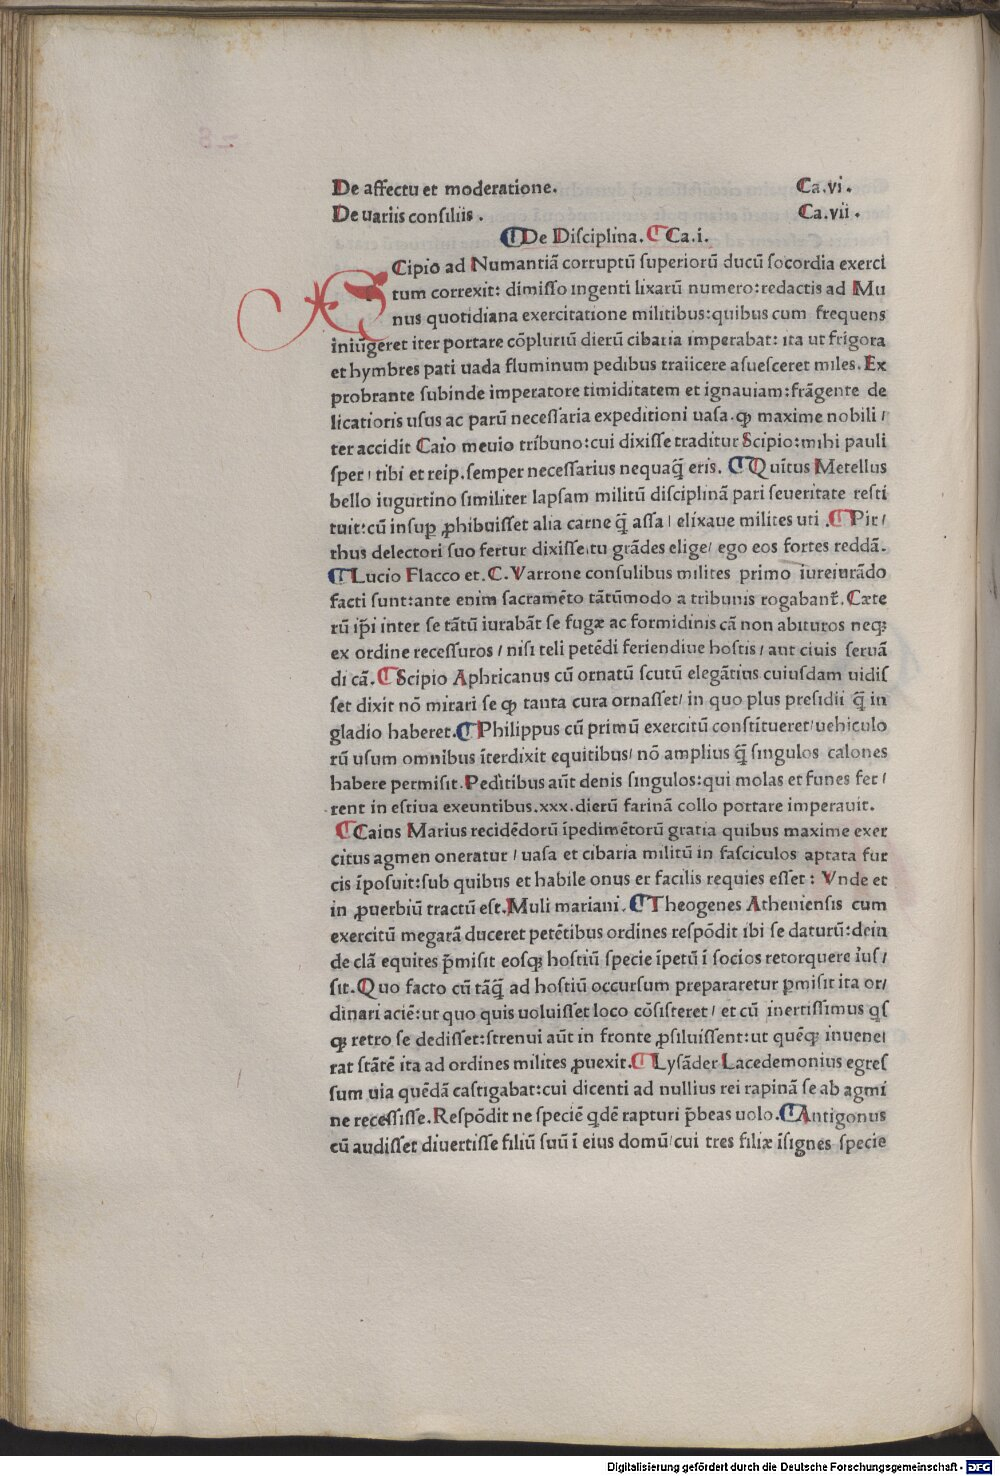 De affectu et moderatione. Ca.vi.
De uariis consiliis. Ca.vii.
¶De Disciplina. ¶Ca.i.
SCipio ad Numantiā corruptū ſuperiorū ducū ſocordia exerci
tum correxit: dimiſſo ingenti lixarū numero:redactis ad Mu
nus quotidiana exercitatione militibus:quibus cum frequens
iniūgeret iter portare cōpluriū dierū cibaria imperabat: ita ut frigora
et hymbres pati uada fluminum pedibus traiicere aſueſceret miles. Ex
probrante ſubinde imperatore timiditatem et ignauiam:frāgente de
licatioris uſus ac parū neceſſaria expeditioni uaſa.ꝙ maxime nobili/
ter accidit Caio meuio tribuno:cui dixiſſe traditur Scipio:mihi pauli
ſper/tibi et reip.ſemper neceſſarius nequaq̄ eris. ¶Quītus Metellus
bello iugurtino ſimiliter lapſam militū diſciplinā pari ſeueritate reſti
tuit:cū inſuꝑ ꝓhibuiſſet alia carne q̄ aſſa/elixaue milites uti. ¶Pir/
rhus delectori ſuo fertur dixiſſe:tu grādes elige/ ego eos fortes reddā.
¶Lucio Flacco et.C.Varrone conſulibus milites primo iureiurādo
facti ſunt:ante enim ſacramēto tātūmodo a tribunis rogabant̄. Cæte
rū ip̄i inter ſe tātū iurabāt ſe fugæ ac formidinis cā non abituros neqꝫ
ex ordine receſſuros/niſi teli petēdi feriendiue hoſtis/aut ciuis ſeruā
di cā.¶Scipio Aphricanus cū ornatū ſcutū elegātius cuiuſdam uidiſ
ſet dixit nō mirari ſe ꝙ tanta cura ornaſſet/in quo plus preſidii q̄ in
gladio haberet.¶Philippus cū primū exercitū conſtitueret/uehiculo
rū uſum omnibus īterdixit equitibus/nō amplius q̄ ſingulos calones
habere permiſit.Peditibus aūt denis ſingulos:qui molas et funes fer/
rent in eſtiua exeuntibus.xxx.dierū farinā collo portare imperauit.
¶Caius Marius recidēdorū īpedimētorū gratia quibus maxime exer
citus agmen oneratur/uaſa et cibaria militū in faſciculos aptata fur
cis īpoſuit:ſub quibus et habile onus er facilis requies eſſet: Vnde et
in ꝓuerbiū tractū eſt.Muli mariani.¶Theogenes Athenienſis cum
exercitū megarā duceret petētibus ordines reſpōdit ibi ſe daturū:dein
de clā equites p̄miſit eoſqꝫ hoſtiū ſpecie īpetū ī ſocios retorquere iuſ/
ſit.Quo facto cū tāq̄ ad hoſtiū occurſum prepararetur ꝑmiſit ita or/
dinari aciē:ut quo quis uoluiſſet loco cōſiſteret/et cū inertiſſimus qſ
qꝫ retro ſe dediſſet:ſtrenui aūt in fronte ꝓſiluiſſent:ut quēqꝫ inuene
rat ſtātē ita ad ordines milites ꝓuexit.¶Lyſāder Lacedemonius egreſ
ſum uia quēdā caſtigabat:cui dicenti ad nullius rei rapinā ſe ab agmi
ne receſſiſſe.Reſpōdit ne ſpeciē qdē rapturi p̄beas uolo.¶Antigonus
cū audiſſet diuertiſſe filiū ſuū ī eius domū/cui tres filiæ īſignes ſpecie
Digitalisierung gefördert durch die Deutsche Forschungsgemeinschaft - DFG